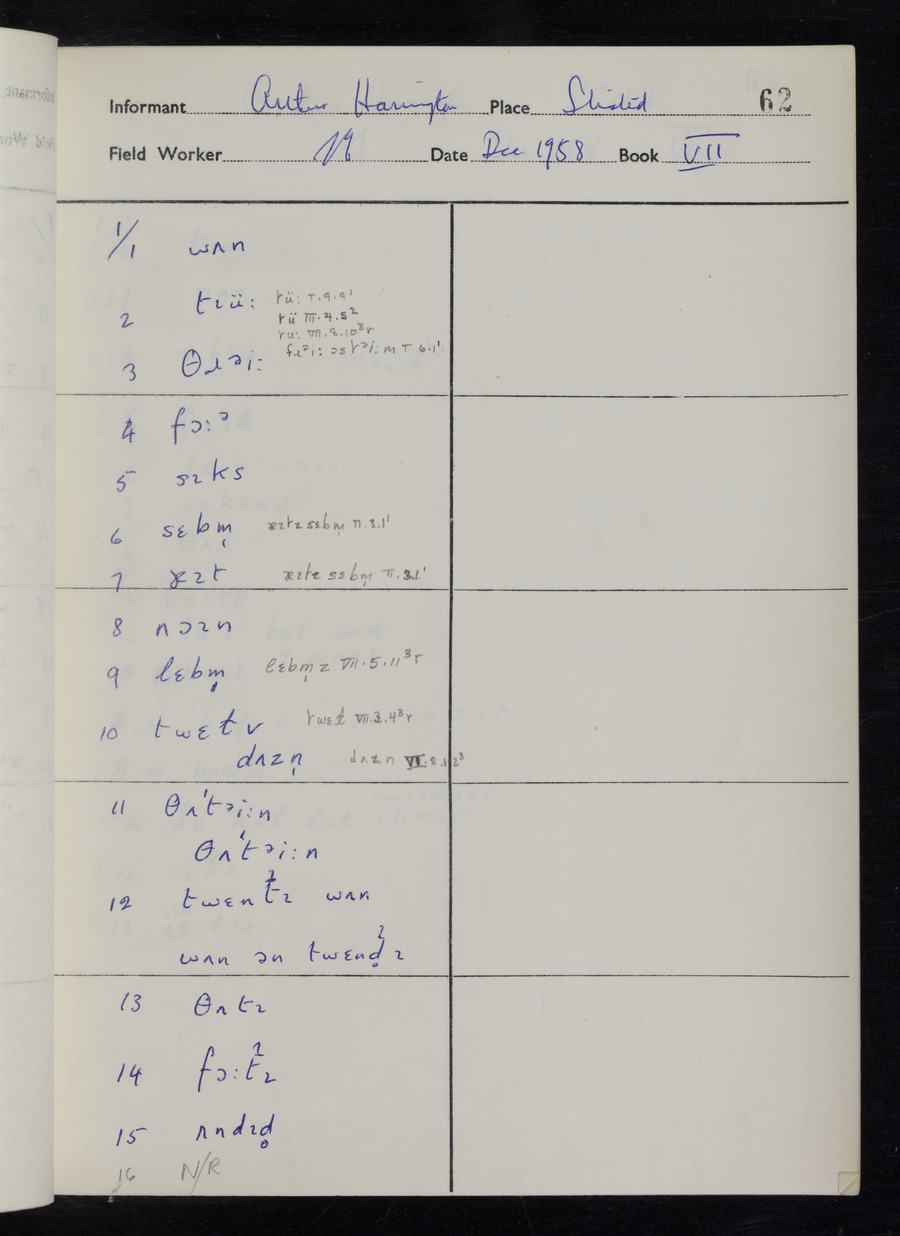 Informant Arthur Harrington Place 62
Field Worker Date Dec 1958 Book VII
1/1 wʌn
2 tɪü: tü: I.9.9¹
tü III.4.5²
tü: VII.8.10³r
3 θɹəi: fɹəi:
4 fɔ:ᵊ
5 sɪks
6 sɛbm̩ ɛɪtɪ sɛbm̩ II.3.1¹
7 æɪt æɪtɪ sɛbm̩ II.3.1¹
8 nɔɪn
9 lɛbm̩ lɛbm̩z VII.5.11³r
10 twɛt̬v twɛt̬ VII.3.4³r
dʌzn̩ dʌzn VII.8.12³
11 θʌˈtəi:n
θʌˈtəi:n
12 twɛnt̬ɪ wʌn
wʌn ən twɛnd̥ɪ
13 θʌtɪ
14 fɔ:t̬ɪ
15 ʌndɪd̥
16 N/R